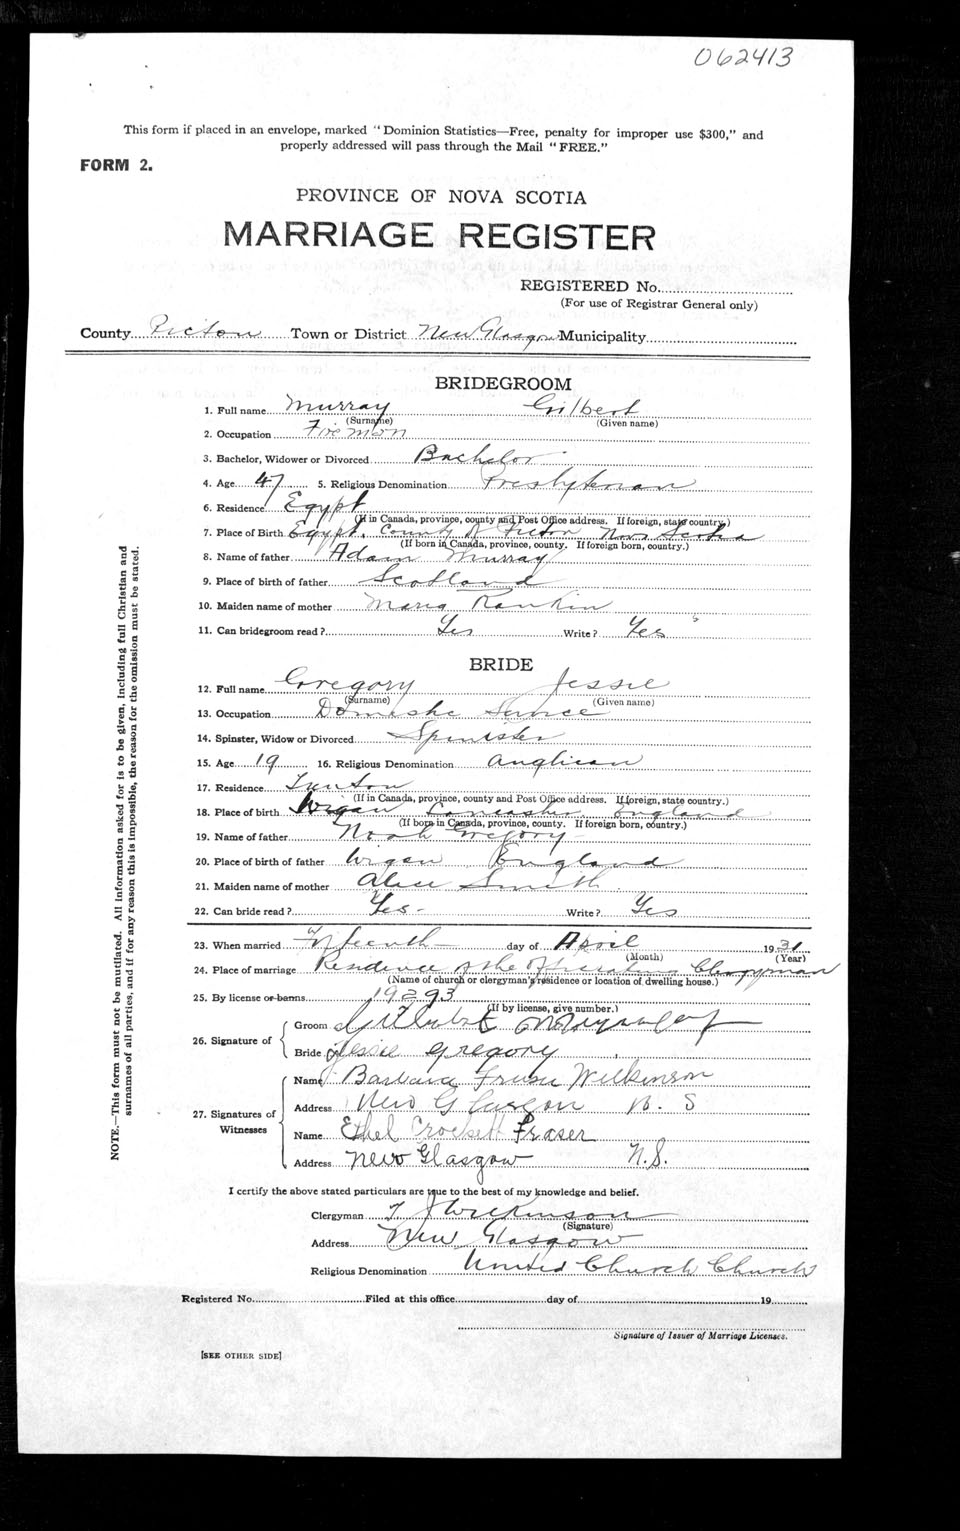 062413
This form if placed in an envelope, marked "Dominion Statistics—Free, penalty for improper use $300," and
properly addressed will pass through the Mail "FREE."
FORM 2.
PROVINCE OF NOVA SCOTIA
MARRIAGE REGISTER
REGISTERED No.
(For use of Registrar General only)
County Pictou Town or District New Glasgow Municipality
BRIDEGROOM
1. Full name Murray Gilbert
(Surname) (Given name)
2. Occupation Fireman
3. Bachelor, Widower or Divorced Bachelor
4. Age 47 5. Religious Denomination Presbyterian
6. Residence Egypt
(If in Canada, province, county and Post Office address. If foreign, state country.)
7. Place of Birth Egypt, County of Pictou Nova Scotia
(If born in Canada, province, county. If foreign born, country.)
8. Name of father Adam Murray
9. Place of birth of father Scotland
10. Maiden name of mother Maria Rankin
11. Can bridegroom read? Yes Write? Yes
BRIDE
12. Full name Gregory Jessie
(Surname) (Given name)
13. Occupation Domestic Service
14. Spinster, Widow or Divorced Spinster
15. Age 19 16. Religious Denomination Anglican
17. Residence
(If in Canada, province, county and Post Office address. If foreign, state country.)
18. Place of birth Wigan Lancaster England
(If born in Canada, province, county. If foreign born, country.)
19. Name of father Noah Gregory
20. Place of birth of father Wigan England
21. Maiden name of mother Alice Smith
22. Can bride read? Yes - Write? Yes
23. When married Fifteenth day of April 1931
(Month) (Year)
24. Place of marriage Residence of the Officiating Clergyman
(Name of church or clergyman's residence or location of dwelling house.)
25. By license or banns 19293
(If by license, give number.)
26. Signature of
Groom Gilbert Murray
Bride Jessie Gregory
27. Signatures of Witnesses
Name Barbara Wilkinson
Address New Glasgow N. S
Name Ethel Crockett Fraser
Address New Glasgow N.S.
I certify the above stated particulars are true to the best of my knowledge and belief.
Clergyman Wilkinson
(Signature)
Address New Glasgow
Religious Denomination United Church Church
Registered No. Filed at this office day of 19
Signature of Issuer of Marriage Licenses.
[SEE OTHER SIDE]
NOTE.—This form must not be mutilated. All information asked for is to be given, including full Christian and
surnames of all parties, and if for any reason this is impossible, the reason for the omission must be stated.